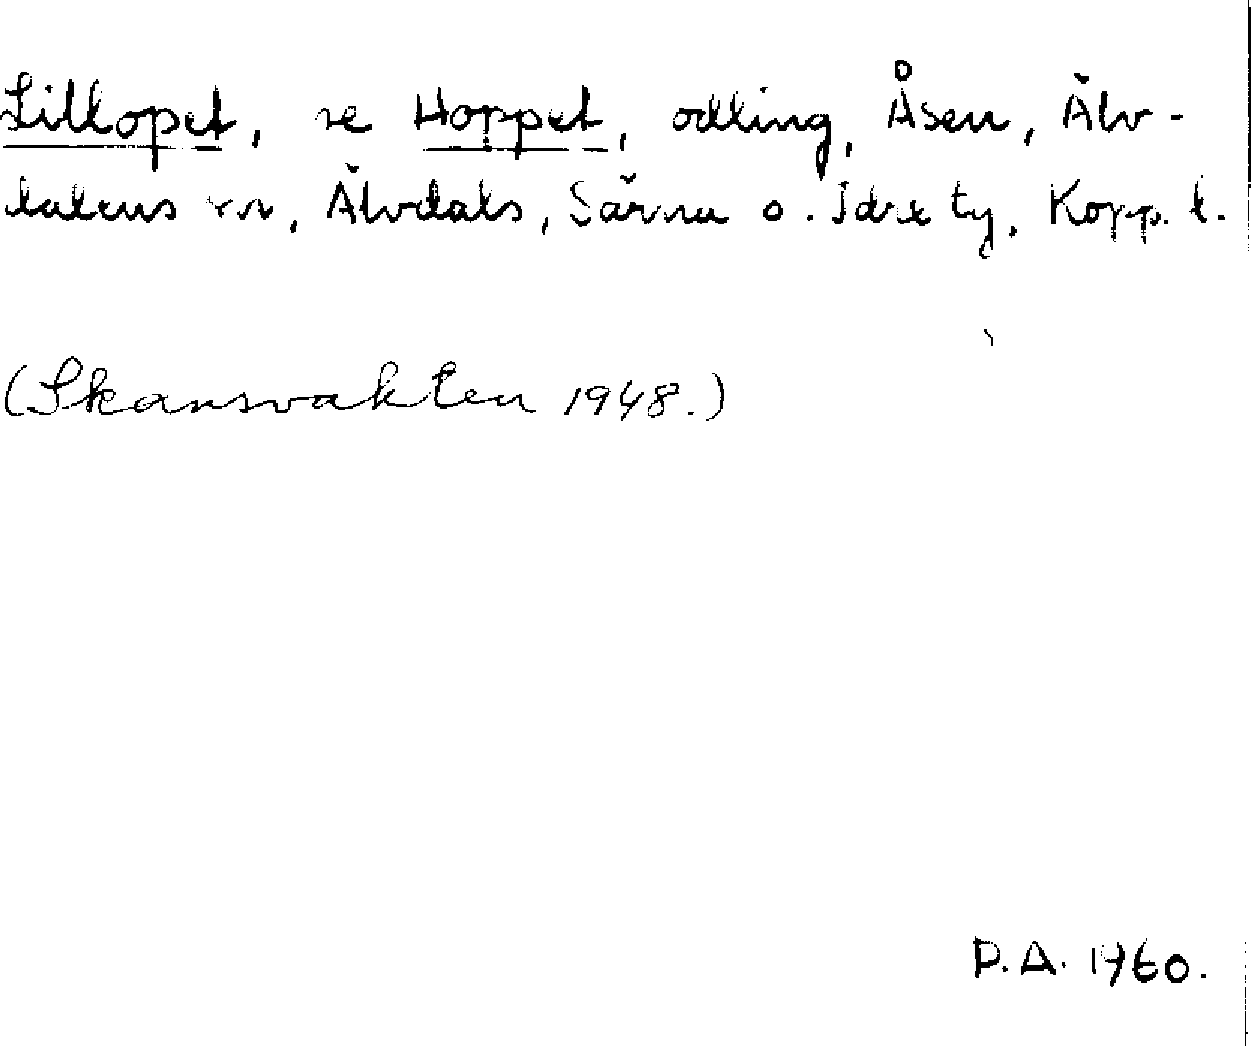 Lillopet, se Hoppet, odling, Åsen, Älv-
dalens sn, Älvdals, Särna o. Idre tg, Kopp. l.
(Skansvakten 1948.)
P.A. 1960.